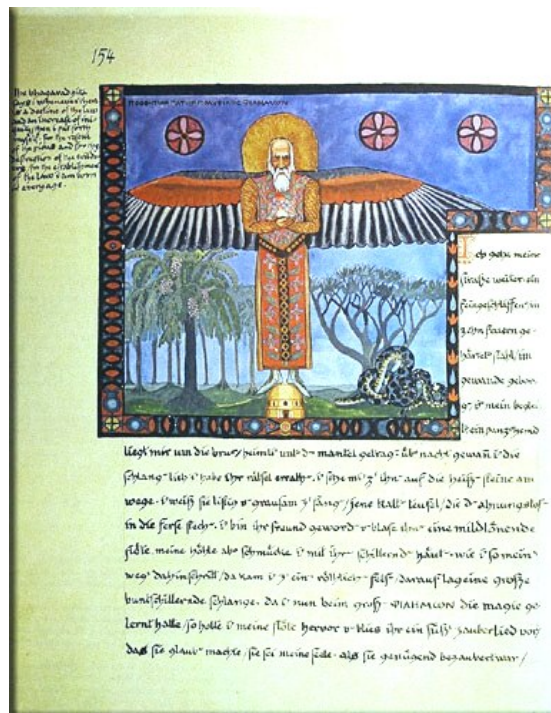 154
the bhagavad gita
says: whenever there
is a decline of the law
and an increase of ini
quity / then i put forth
myself. for the rescue
of the pious and for the
destruction of the evildo
ers, for the establishment
of the law i am born
in every age.
ΦΙΛΗΜΩΝ
Ich gehe meine
straße weiter. ein
feingeschliffen in
zehn feuern ge-
härtet stahl / im
gewande gebor
g, ist mein beglei
t. ein panzerhemd
liegt mir um die brust / heimli unt d mantel getrag. üb nacht gewañ i die
schlang lieb / i habe ihr rätsel errath. i setze mi z ihn auf die heiß steine am
wege. i weiß sie listig v grausam z fang / jene kalt teufel / die d ahnungslos
in die ferse stech. i bin ihr freund geword v blase ihn eine mildtönende
flöte. meine höhle ab schmücke i mit ihr schillernd häut. wie i so mein
weg dahinschritt / da kam i z ein röthlich fels / darauf lag eine große
buntschillernde schlange. da i nun beim groß ΦΙΛΗΜΩΝ die magie ge
lernt hatte / so holte i meine flöte hervor v blies ihr ein süß zauberlied vor /
das sie glaub machte / sie sei meine seele. als sie genügend bezaubert war /